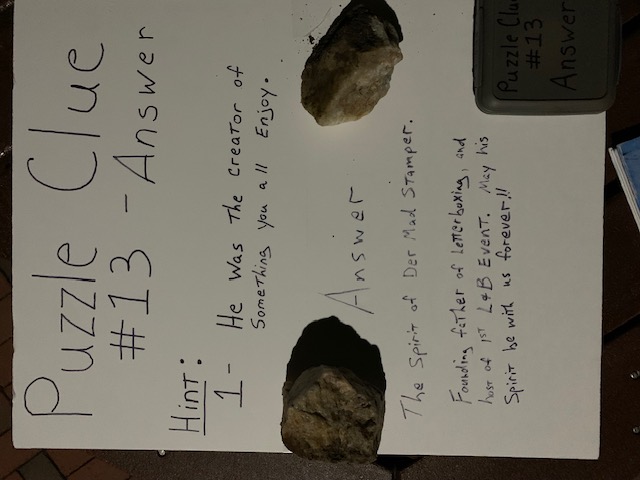 Puzzle Clue
#13 - Answer
Hint:
1- He was the creator of
something you all Enjoy.
Answer
The Spirit of Der Mad Stamper.
Founding father of letterboxing, and
host of 1ST L+B Event. May his
Spirit be with us forever!!
Puzzle Clu
#13
Answer